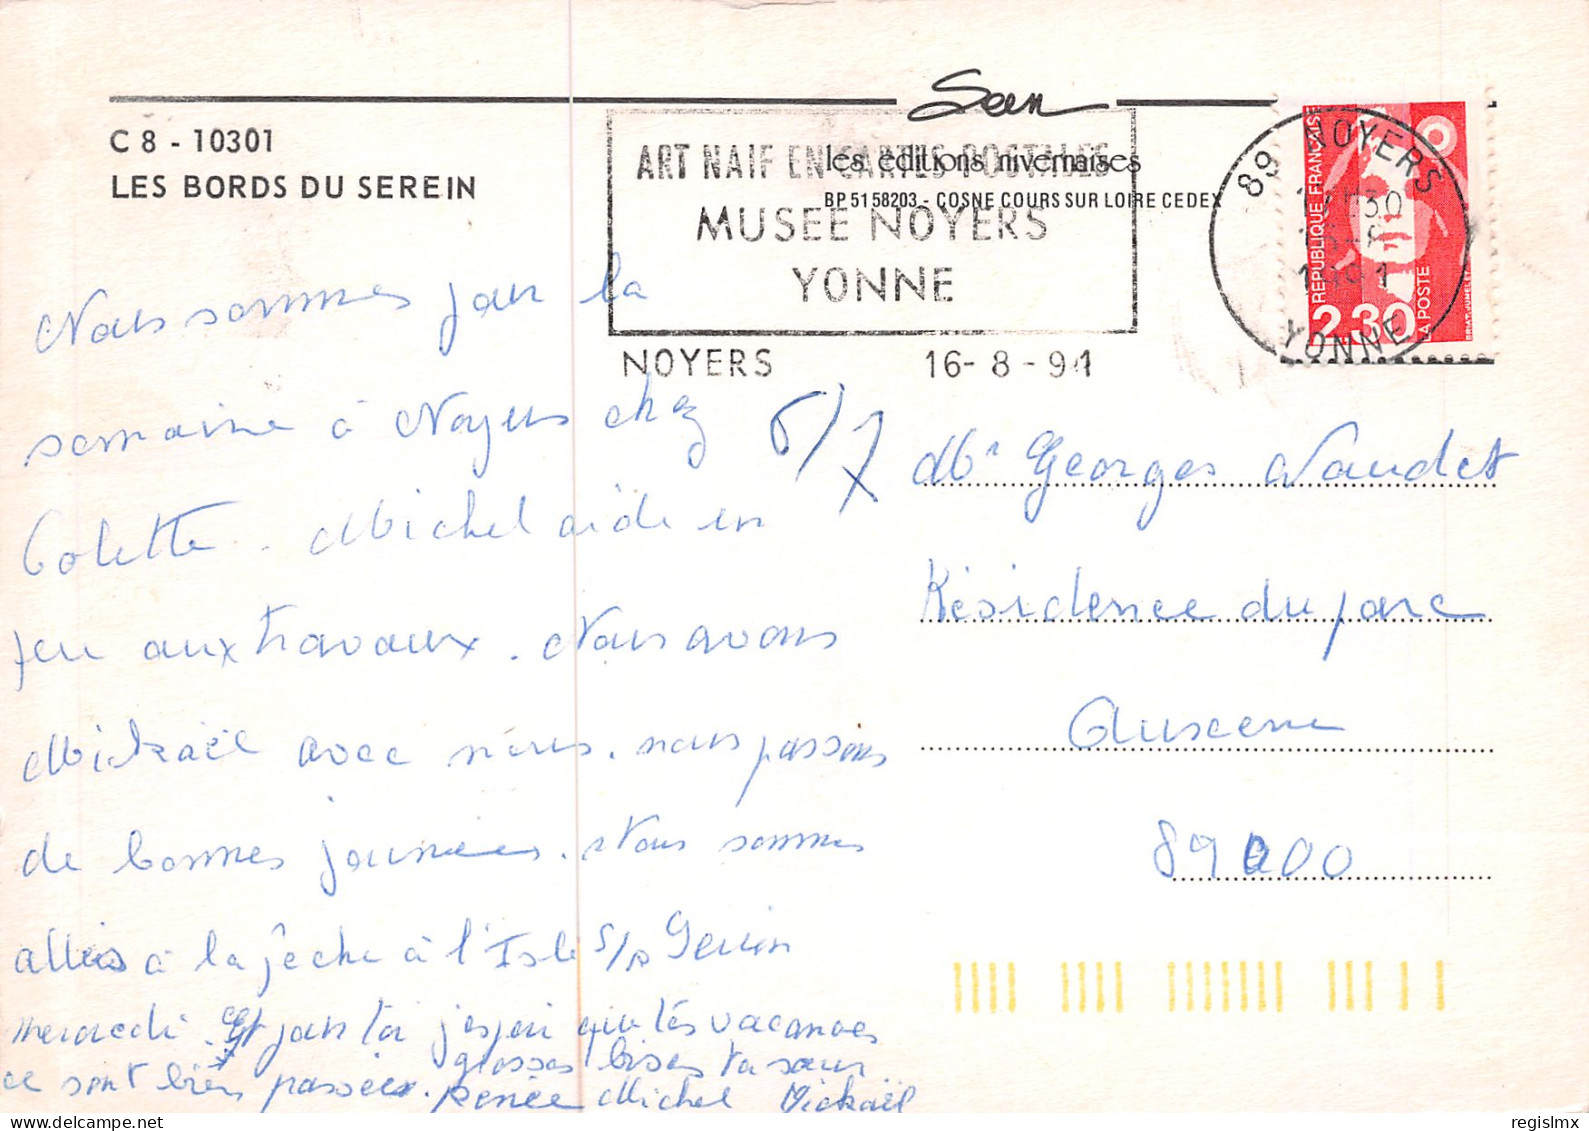 C 8 - 10301
LES BORDS DU SEREIN
Seen
les éditions nivernaises
BP 51 58203 - COSNE COURS SUR LOIRE CEDEX
ART NAIF EN CARTES POSTALES
MUSEE NOYERS
YONNE
NOYERS 16-8-91
89 NOYERS
YONNE
REPUBLIQUE FRANÇAISE
LA POSTE
2,30
Nous sommes pour la
semaine à Noyers chez
Colette. Michel aide un
peu aux travaux. Nous avons
Mickaël avec nous. nous passons
de bonnes journées. Nous sommes
allés à la pêche à l'Isle s/s Serein
mercredi. Et pour toi j'espère que tes vacances
ce sont bien passées. grosses bises ta sœur
Renée Michel Mickaël
6/7
Mr Georges Naudet
Résidence du parc
Auxerre
89000
regislmx